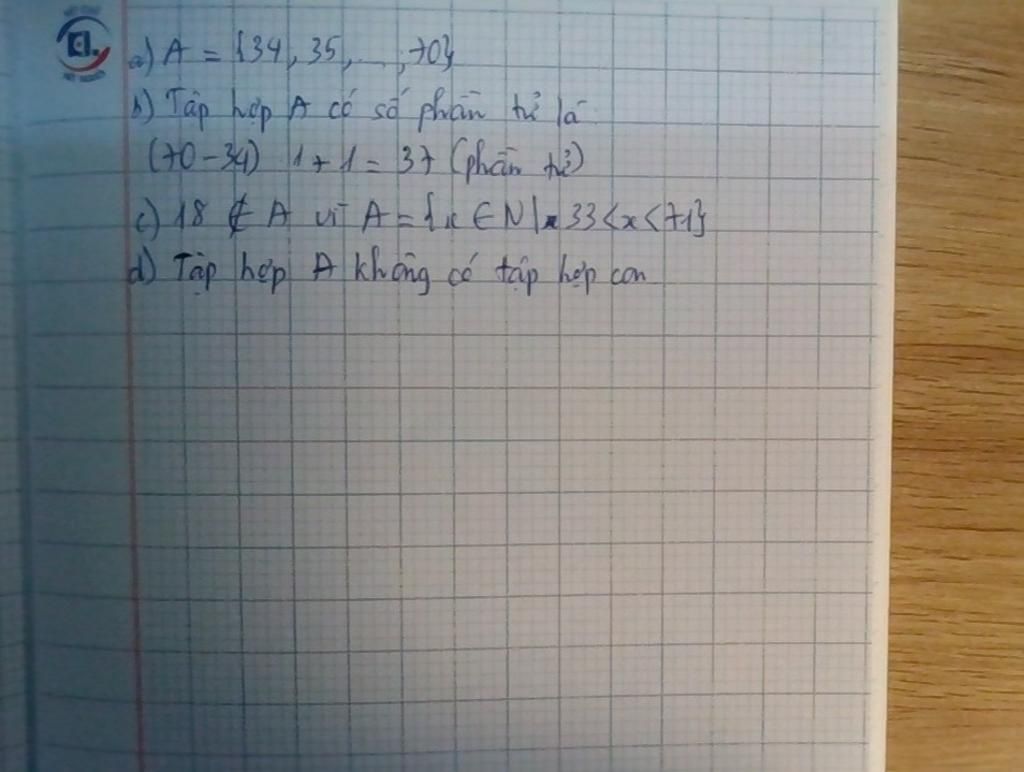 a) A = {34, 35, ..., 70}
b) Tập hợp A có số phần tử là
(70 - 34) 1 + 1 = 37 (phần tử)
c) 18 ∉ A vì A = {x ∈ N | 33 < x < 71}
d) Tập hợp A không có tập hợp con